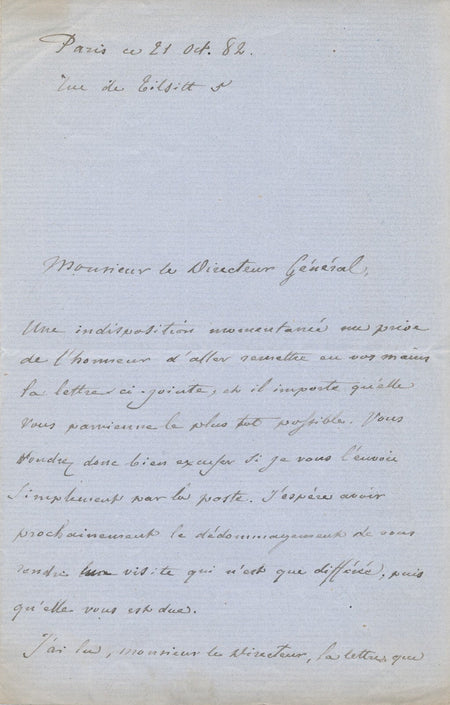 Paris ce 21 Oct. 82.
rue de Tilsitt 5
Monsieur le Directeur Général,
Une indisposition momentanée me prive
de l'honneur d'aller remettre en vos mains
la lettre ci-jointe, et il importe qu'elle
vous parvienne le plus tot possible. Vous
voudrez donc bien excuser si je vous l'envoie
simplement par la poste. J'espère avoir
prochainement le dédommagement de vous
rendre visite qui n'est que différée, puis
qu'elle vous est due.
J'ai lu, monsieur le Directeur, la lettre que